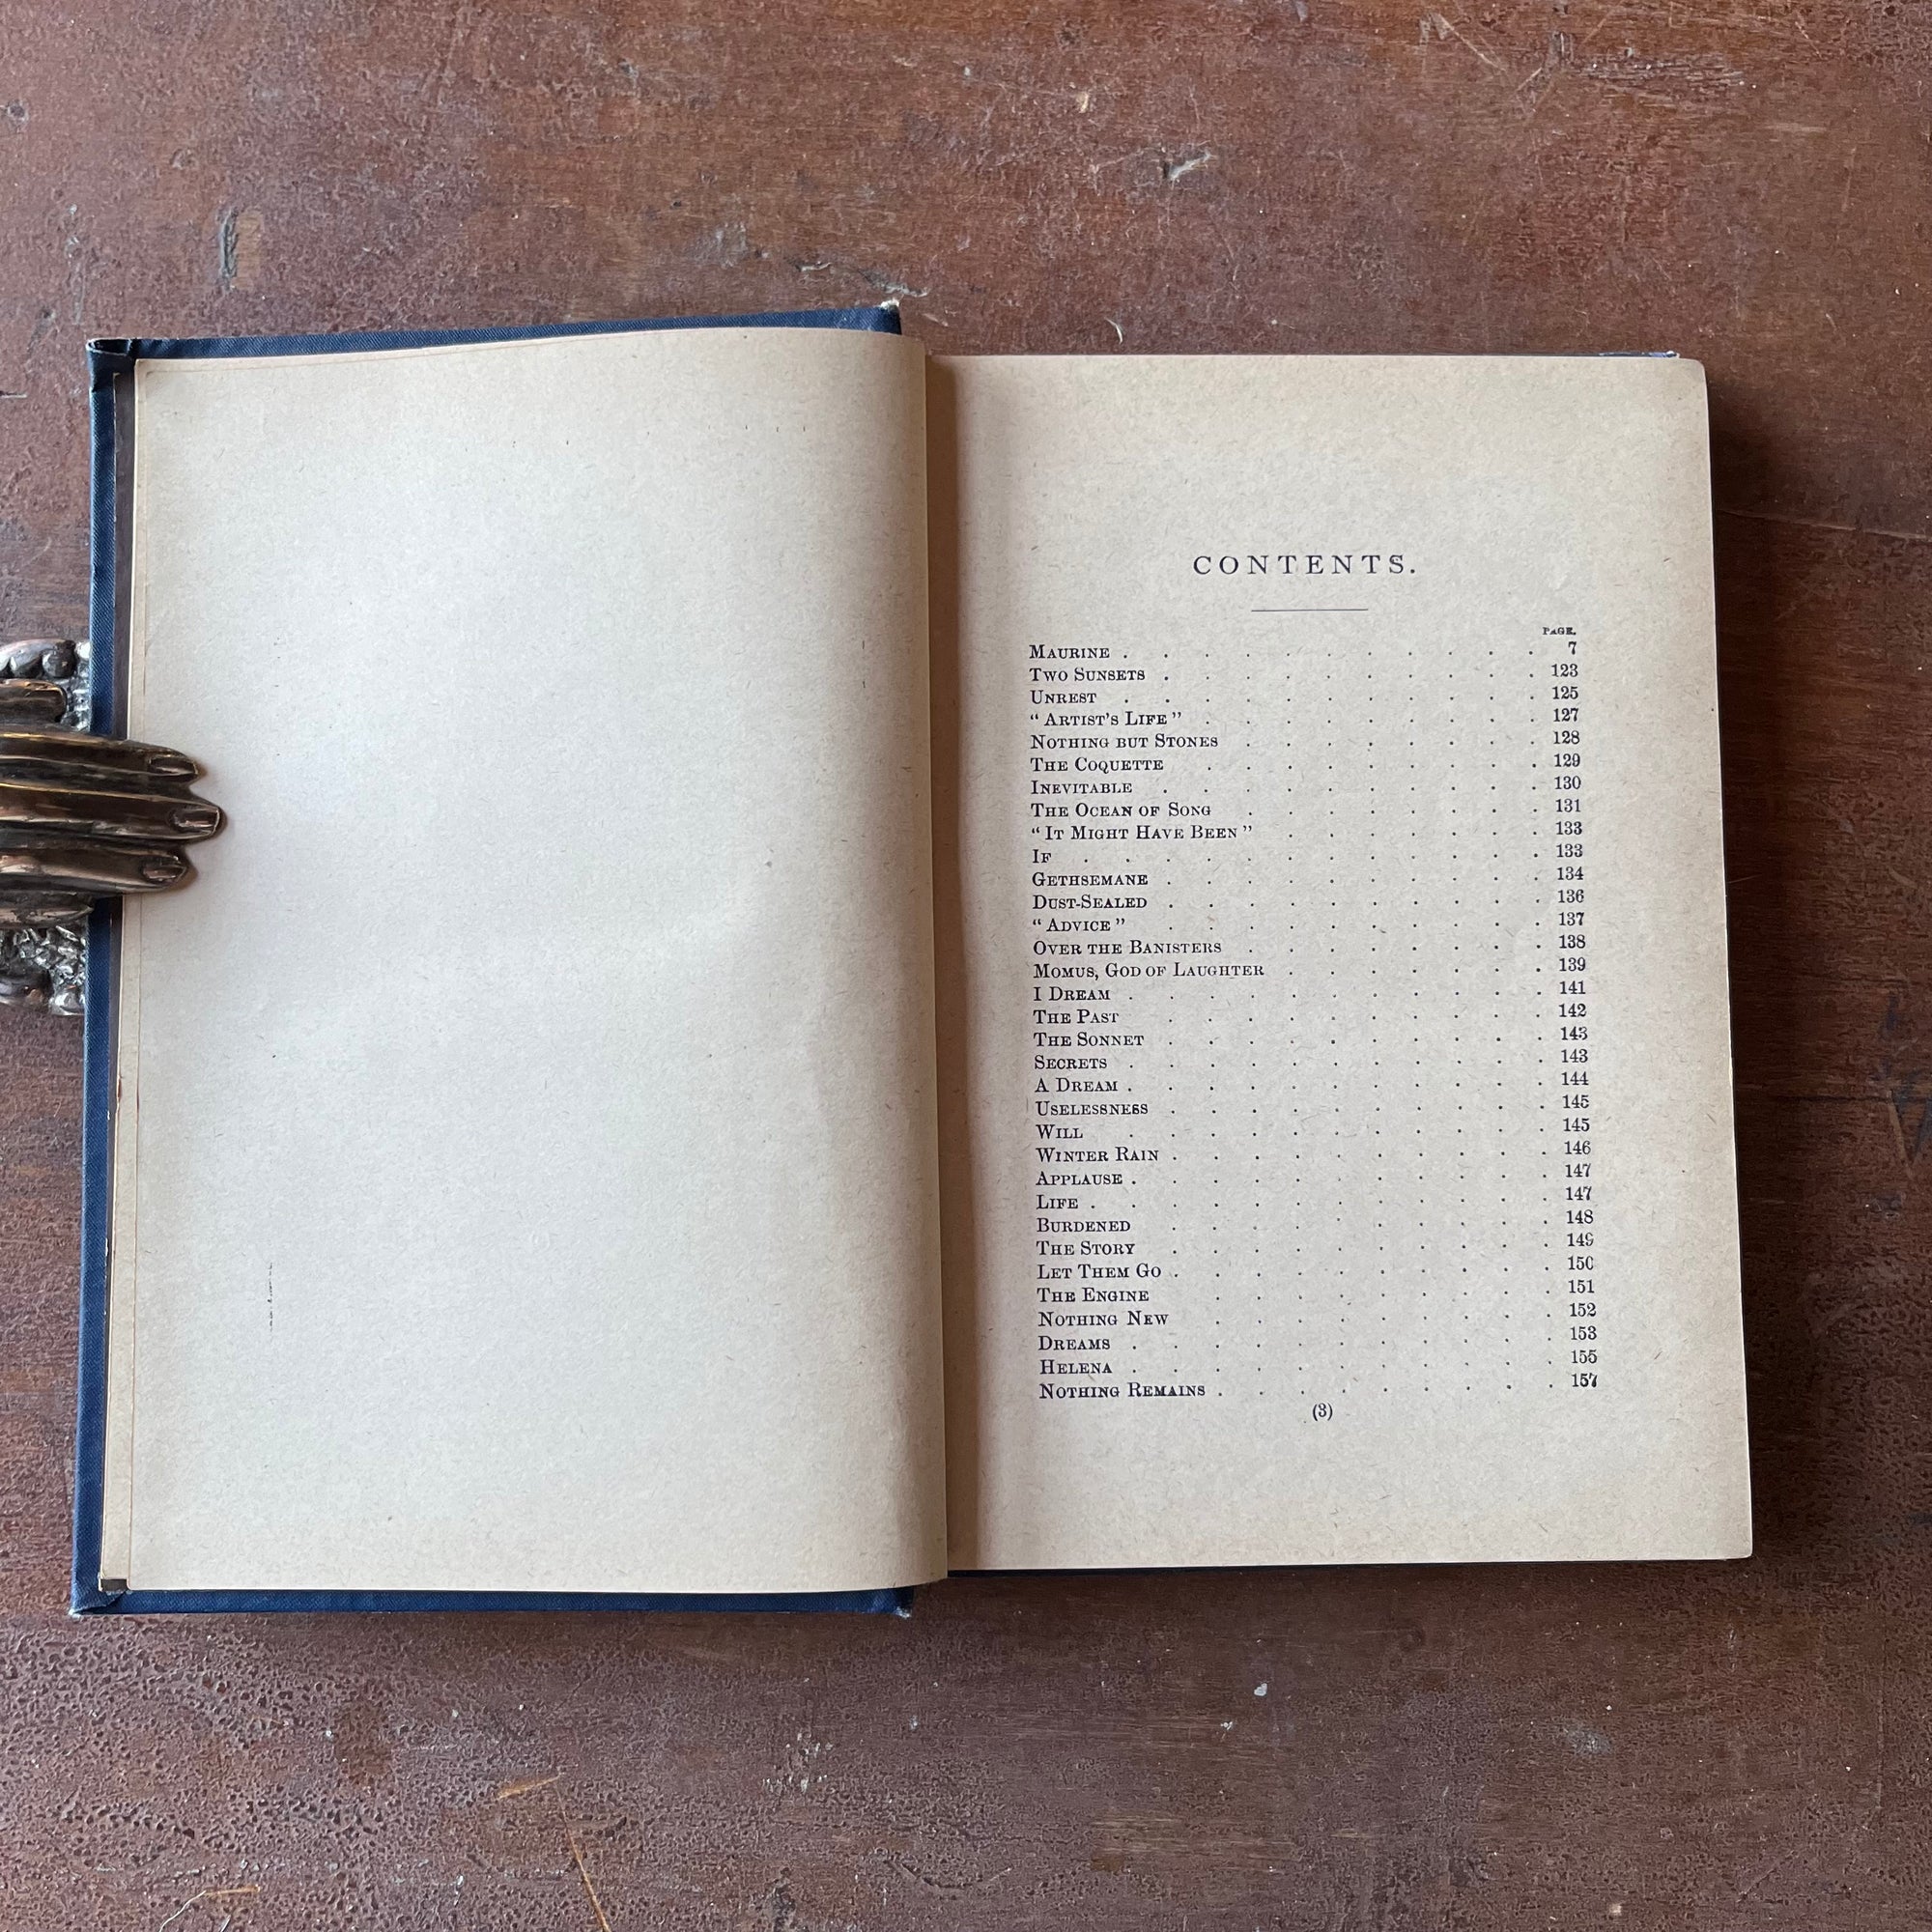 CONTENTS.
PAGE.
MAURINE . . . . . . . . . . . 7
TWO SUNSETS . . . . . . . . . . 123
UNREST . . . . . . . . . . . 125
“ARTIST'S LIFE” . . . . . . . . . 127
NOTHING BUT STONES . . . . . . . . 128
THE COQUETTE . . . . . . . . . 129
INEVITABLE . . . . . . . . . . 130
THE OCEAN OF SONG . . . . . . . . 131
“IT MIGHT HAVE BEEN” . . . . . . . 133
IF . . . . . . . . . . . . 133
GETHSEMANE . . . . . . . . . . 134
DUST-SEALED . . . . . . . . . . 136
“ADVICE” . . . . . . . . . . 137
OVER THE BANISTERS . . . . . . . . 138
MOMUS, GOD OF LAUGHTER . . . . . . . 139
I DREAM . . . . . . . . . . . 141
THE PAST . . . . . . . . . . 142
THE SONNET . . . . . . . . . . 143
SECRETS . . . . . . . . . . . 143
A DREAM . . . . . . . . . . . 144
USELESSNESS . . . . . . . . . . 145
WILL . . . . . . . . . . . 145
WINTER RAIN . . . . . . . . . . 146
APPLAUSE . . . . . . . . . . . 147
LIFE . . . . . . . . . . . . 147
BURDENED . . . . . . . . . . 148
THE STORY . . . . . . . . . . 149
LET THEM GO . . . . . . . . . . 150
THE ENGINE . . . . . . . . . 151
NOTHING NEW . . . . . . . . . 152
DREAMS . . . . . . . . . . . 153
HELENA . . . . . . . . . . . 155
NOTHING REMAINS . . . . . . . . . 157
(3)